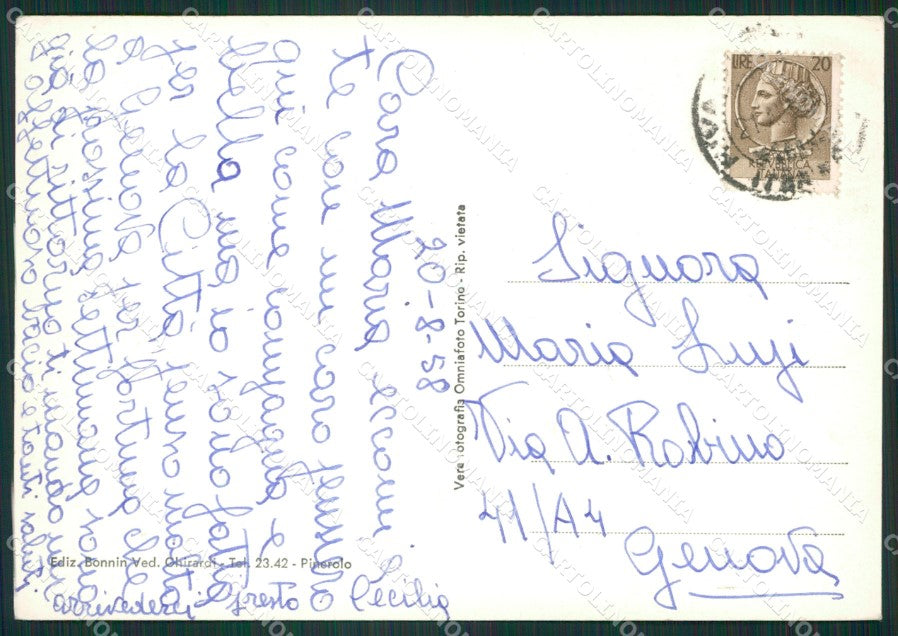 20-8-58
Cara Maria eccomi a
te con un caro pensiero
qui come campagna è
bella ma io sono fatta
per la Città penso molto
a Genova per fortuna che
la prossima settimana sono
già di ritorno ti mando un
affettuoso bacio e tanti saluti.
arrivederci presto Cecilia
Ediz. Bonnin Ved. Ghirardi - Tel. 23.42 - Pinerolo
Vera fotografia Omniafoto Torino - Rip. vietata
LIRE 20
Signora
Maria Luji
Via A. Robino
41/A4
Genova
CARTOLINOMANIA